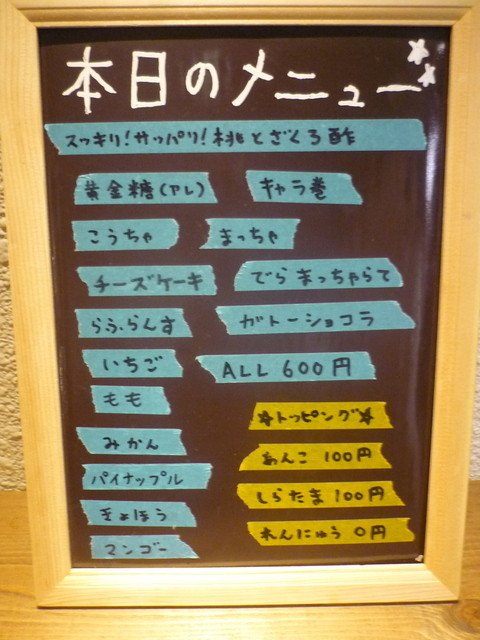 本日のメニュー
スッキリ!サッパリ!桃とざくろ酢
黄金糖(アレ) キャラ巻
こうちゃ まっちゃ
チーズケーキ でらまっちゃらて
らふらんす ガトーショコラ
いちご ALL 600円
もも
☆トッピング☆
みかん
あんこ 100円
パイナップル
しらたま 100円
きょほう
れんにゅう 0円
マンゴー